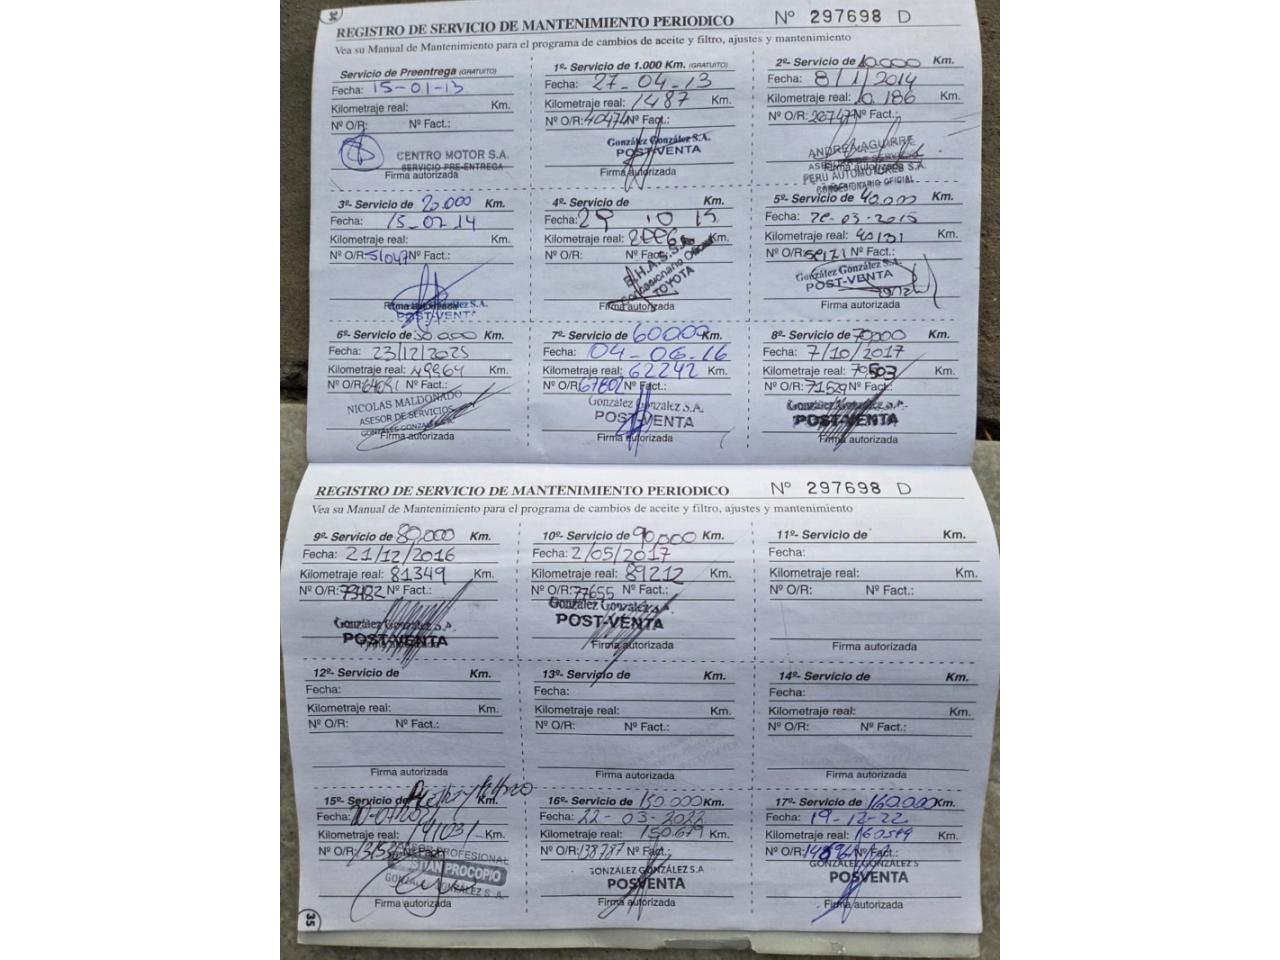 34
REGISTRO DE SERVICIO DE MANTENIMIENTO PERIODICO Nº 297698 D
Vea su Manual de Mantenimiento para el programa de cambios de aceite y filtro, ajustes y mantenimiento
Servicio de Preentrega (GRATUITO)
Fecha: 15-01-13
Kilometraje real: Km.
Nº O/R: Nº Fact.:
CENTRO MOTOR S.A.
SERVICIO PRE-ENTREGA
Firma autorizada
1º- Servicio de 1.000 Km. (GRATUITO)
Fecha: 27-04-13
Kilometraje real: 1487 Km.
Nº O/R: 40474 Nº Fact.:
González González S.A.
POST-VENTA
Firma autorizada
2º- Servicio de 10.000 Km.
Fecha: 8/1/2014
Kilometraje real: 10.186 Km.
Nº O/R: 20747 Nº Fact.:
ANDREA AGUIRRE
ASESOR DE SERVICIOS
Firma autorizada
PERU AUTOMOTORES S.A
CONCESIONARIO OFICIAL
3º- Servicio de 20.000 Km.
Fecha: 15-07-14
Kilometraje real: Km.
Nº O/R: 51047 Nº Fact.:
González González S.A.
Firma autorizada
POST-VENTA
4º- Servicio de Km.
Fecha: 29 10 14
Kilometraje real: Km.
Nº O/R: Nº Fact.:
Concesionario Oficial
TOYOTA
Firma autorizada
5º- Servicio de 40.000 Km.
Fecha: 20-03-2015
Kilometraje real: 40131 Km.
Nº O/R: Nº Fact.:
González González S.A.
POST-VENTA
Firma autorizada
6º- Servicio de 50.000 Km.
Fecha: 23/12/2025
Kilometraje real: 49964 Km.
Nº O/R: Nº Fact.:
NICOLAS MALDONADO
ASESOR DE SERVICIOS
GONZALEZ GONZALEZ S.A.
Firma autorizada
7º- Servicio de 60000 Km.
Fecha: 04-06-16
Kilometraje real: 62242 Km.
Nº O/R: 67802 Nº Fact.:
González González S.A.
POST-VENTA
Firma autorizada
8º- Servicio de 70.000 Km.
Fecha: 7/10/2017
Kilometraje real: 70503 Km.
Nº O/R: 71529 Nº Fact.:
González González S.A.
POST-VENTA
Firma autorizada
REGISTRO DE SERVICIO DE MANTENIMIENTO PERIODICO Nº 297698 D
Vea su Manual de Mantenimiento para el programa de cambios de aceite y filtro, ajustes y mantenimiento
9º- Servicio de 80.000 Km.
Fecha: 21/12/2016
Kilometraje real: 81349 Km.
Nº O/R: 73482 Nº Fact.:
González González S.A.
POST-VENTA
Firma autorizada
10º- Servicio de 90.000 Km.
Fecha: 2/05/2017
Kilometraje real: 89212 Km.
Nº O/R: 77655 Nº Fact.:
González González S.A.
POST-VENTA
Firma autorizada
11º- Servicio de Km.
Fecha:
Kilometraje real: Km.
Nº O/R: Nº Fact.:
Firma autorizada
12º- Servicio de Km.
Fecha:
Kilometraje real: Km.
Nº O/R: Nº Fact.:
Firma autorizada
13º- Servicio de Km.
Fecha:
Kilometraje real: Km.
Nº O/R: Nº Fact.:
Firma autorizada
14º- Servicio de Km.
Fecha:
Kilometraje real: Km.
Nº O/R: Nº Fact.:
Firma autorizada
15º- Servicio de Km.
Fecha:
Kilometraje real: 141031 Km.
Nº O/R: Nº Fact.:
PROFESIONAL
CRISTIAN PROCOPIO
GONZALEZ GONZALEZ S.A.
Firma autorizada
16º- Servicio de 150.000 Km.
Fecha: 22-03-2022
Kilometraje real: 150679 Km.
Nº O/R: 138787 Nº Fact.:
GONZÁLEZ GONZÁLEZ S.A
POSVENTA
Firma autorizada
17º- Servicio de 160.000 Km.
Fecha: 19-12-22
Kilometraje real: 160519 Km.
Nº O/R: Nº Fact.:
GONZÁLEZ GONZÁLEZ S
POSVENTA
Firma autorizada
35